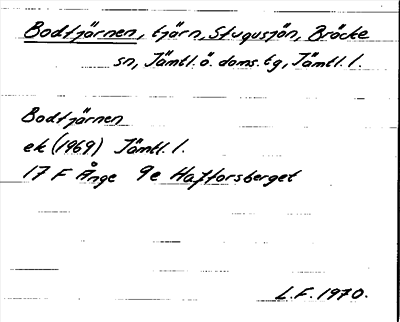 Bodtjärnen, tjärn, Stugusjön, Bräcke
sn, Jämtl. ö. doms. tg, Jämtl. l.
Bodtjärnen
ek (1969) Jämtl. l.
17 F Ånge 9e Haftorsberget
L.F. 1970.